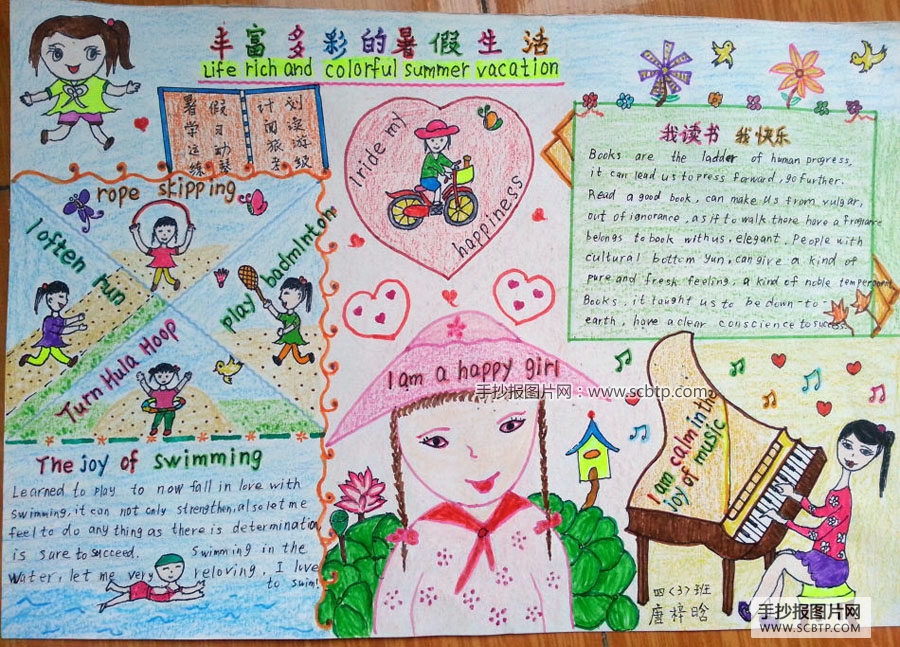 丰富多彩的暑假生活
Life rich and colorful summer vacation
暑假计划
学习阅读
rope skipping
I often run
play badminton
Turn Hula Hoop
I ride my
happiness
我读书 我快乐
Books are the ladder of human progress,
it can lead us to press forward, go further.
Read a good book, can make us from vulgar,
out of ignorance, as if to walk there have a fragrance
belongs to book with us, elegant. People with
cultural bottom Yun, can give a kind of
pure and fresh feeling, a kind of noble temperament
Books, it taught us to be down-to-
earth, have a clear conscience to success
I am a happy girl
手抄报图片网：www.scbtp.com
The joy of swimming
Learned to play to now fall in love with
swimming, it can not only strengthen, also let me
feel to do any thing as there is determination
is sure to succeed. Swimming in the
water, let me very reloving, I love
to swim!
I am calm in the
joy of music
四〈3〉班
唐梓晗
手抄报图片网
WWW.SCBTP.COM